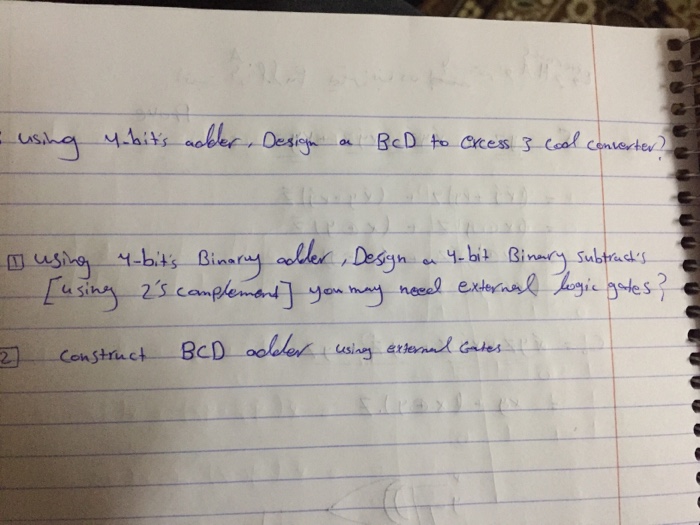 using 4-bit's adder, Design a BCD to excess 3 cool converter?
1 using 4-bit's Binary adder, Design a 4-bit Binary subtract's
[using 2's complement] you may need external logic gates?
2 construct BCD adder, using external Gates